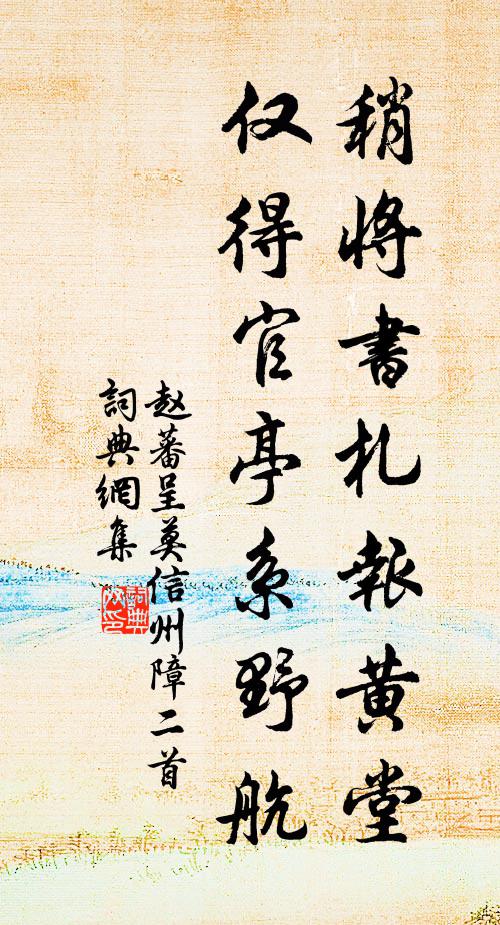 稍將書札報黄堂
仅得官亭系野航
赵蕃呈莫信州障二首
詞典網集